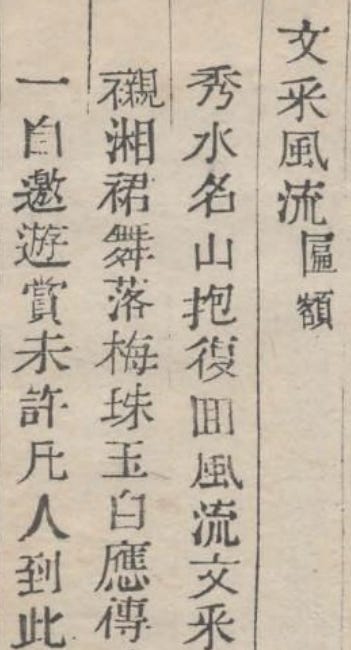 文采風流匾額
秀水名山抱復囬風流文采
襯湘裙舞落梅珠玉自應傳
一自邀遊賞未許凡人到此